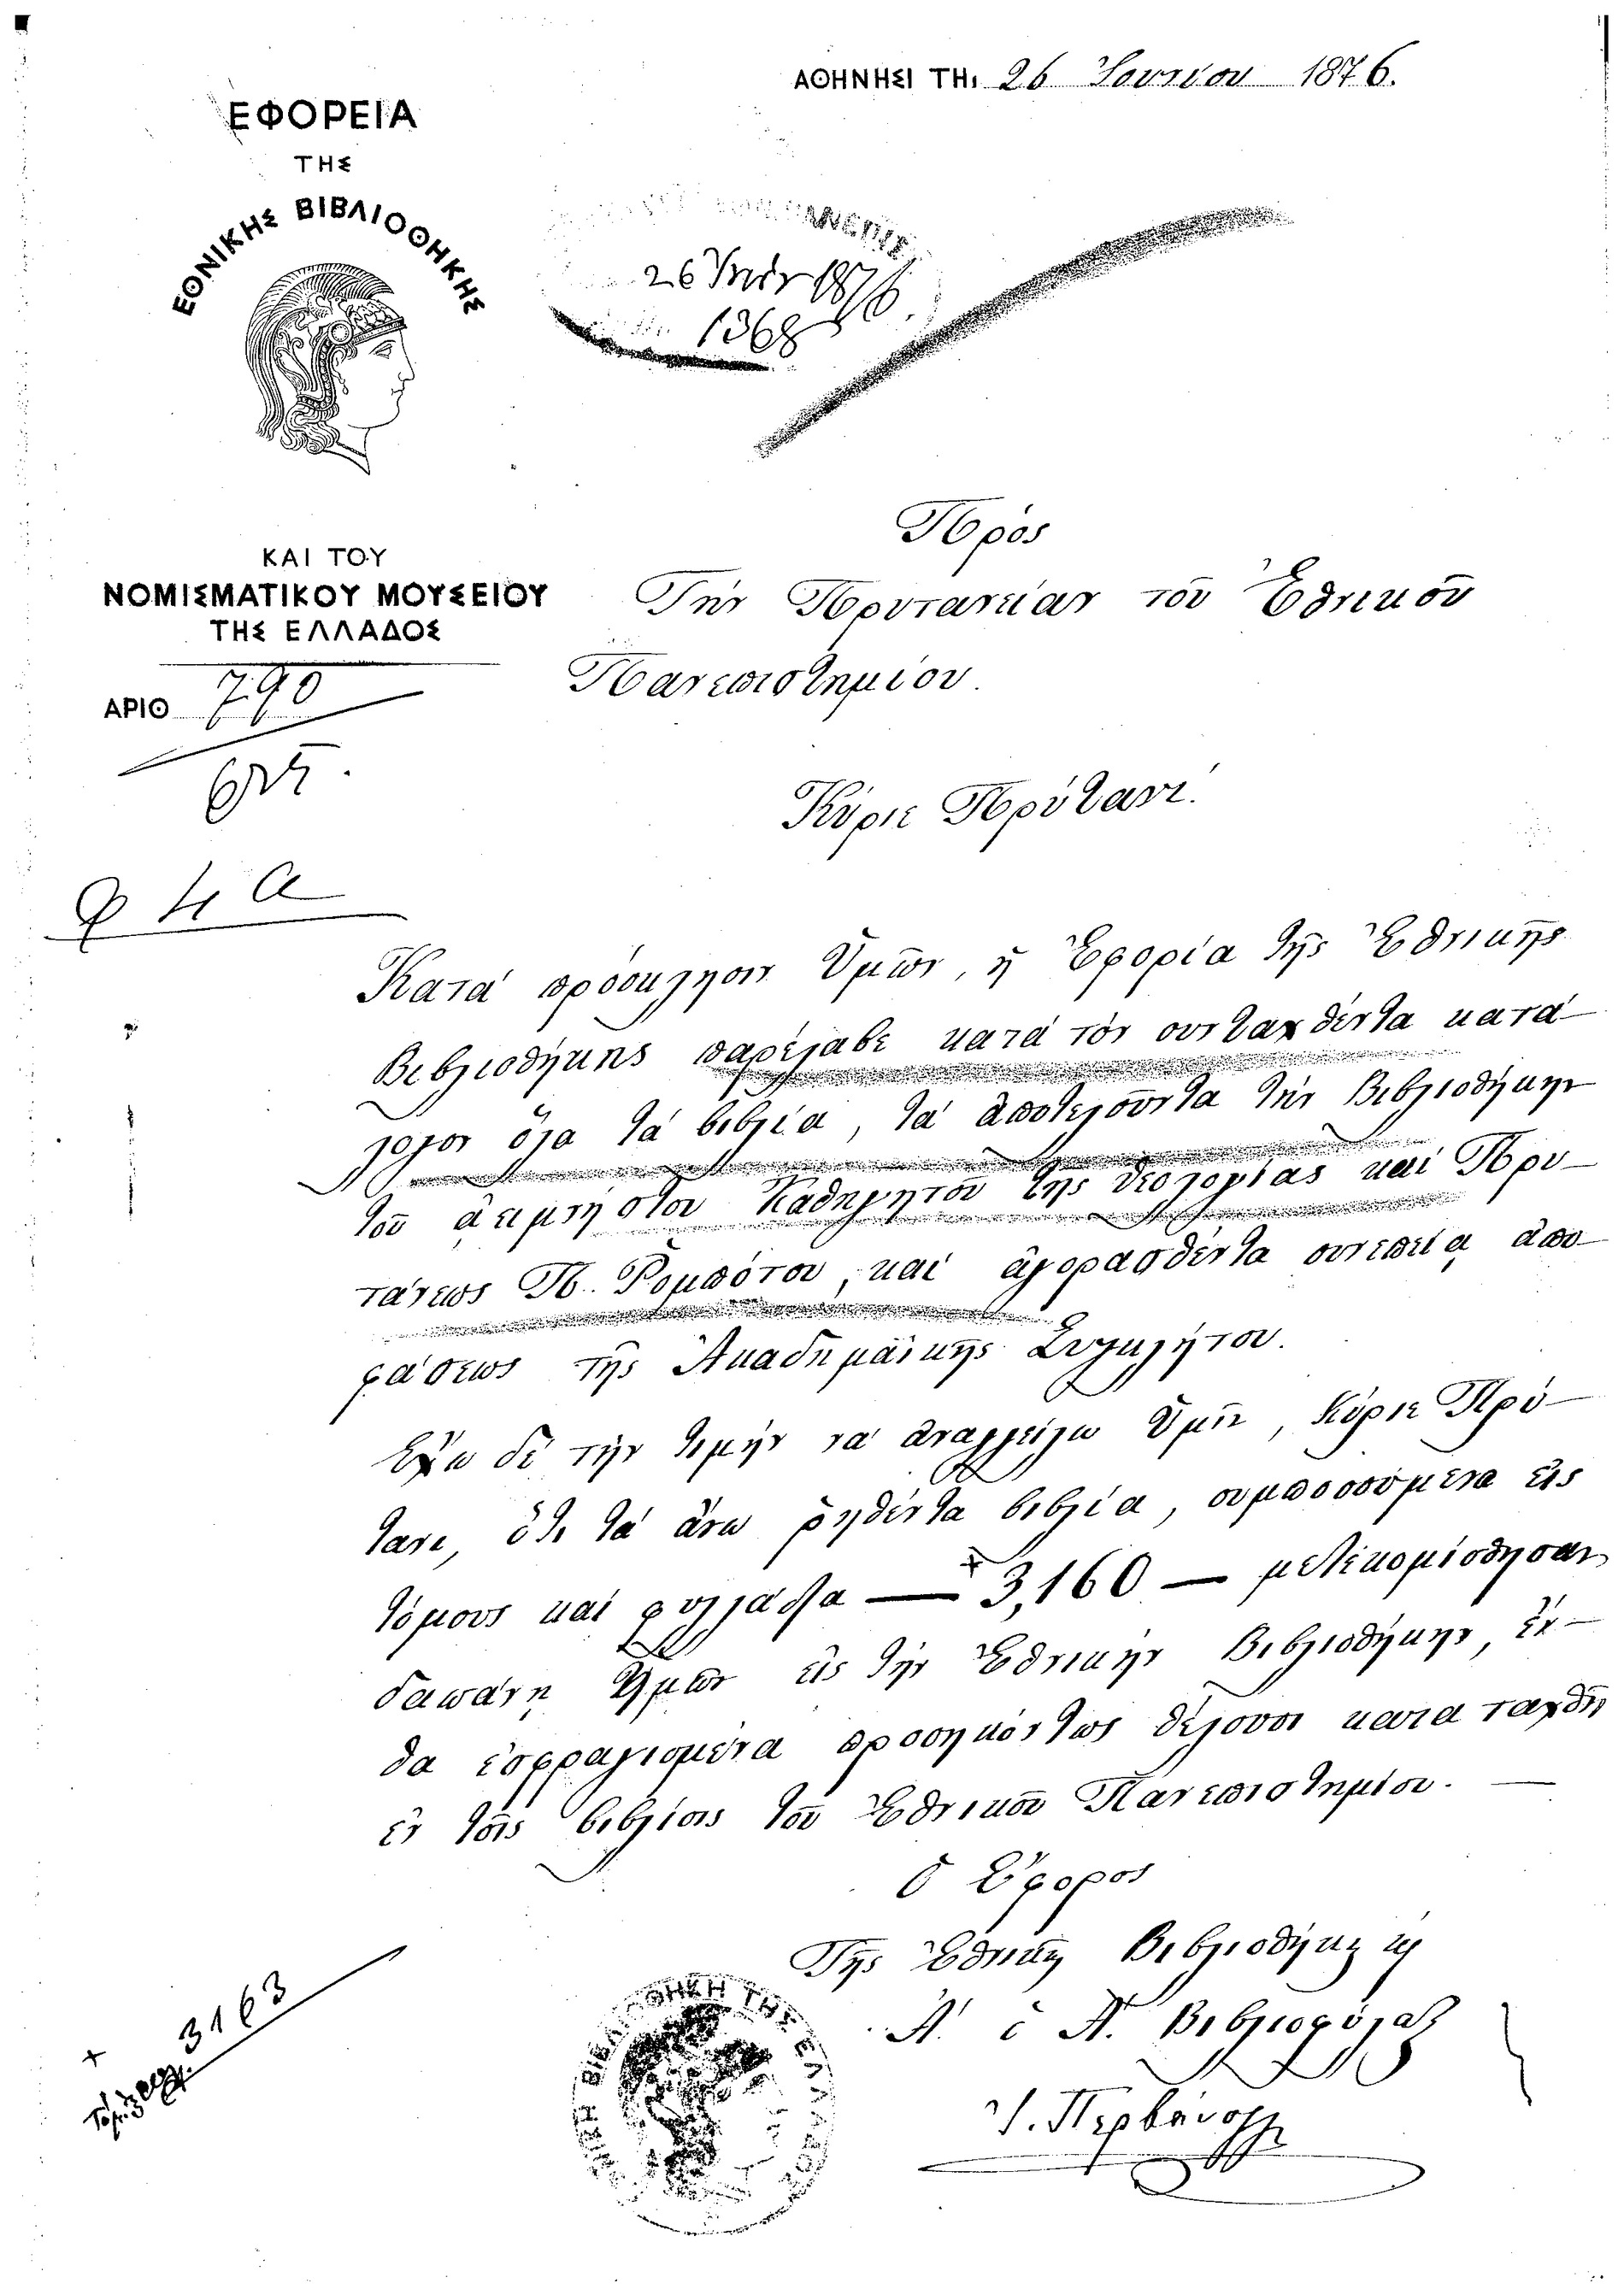 ΑΘΗΝΗΣΙ ΤΗι 26 Ἰουνίου 1876.
ΕΦΟΡΕΙΑ
ΤΗΣ
ΕΘΝΙΚΗΣ ΒΙΒΛΙΟΘΗΚΗΣ
26 1876
1368
ΚΑΙ ΤΟΥ
ΝΟΜΙΣΜΑΤΙΚΟΥ ΜΟΥΣΕΙΟΥ
ΤΗΣ ΕΛΛΑΔΟΣ
ΑΡΙΘ 790
Πρὸς
Τὴν Πρυτανείαν τοῦ Ἐθνικοῦ
Πανεπιστημίου.
Κύριε Πρύτανι.
Κατὰ πρόσκλησιν Ὑμῶν, ἡ Ἐφορία τῆς Ἐθνικῆς
Βιβλιοθήκης παρέλαβε κατὰ τὸν συνταχθέντα κατά-
λογον ὅλα τὰ βιβλία, τὰ ἀποτελοῦντα τὴν Βιβλιοθήκην
τοῦ ἀειμνήστου Καθηγητοῦ τῆς Θεολογίας καὶ Πρυ-
τάνεως Π. Ρομπότου, καὶ ἀγορασθέντα συνεπείᾳ ἀπο-
φάσεως τῆς Ἀκαδημαϊκῆς Συγκλήτου.
Ἔχω δὲ τὴν τιμὴν νὰ ἀναγγείλω Ὑμῖν, Κύριε Πρύ-
τανι, ὅτι τὰ ἄνω ῥηθέντα βιβλία, συμποσούμενα εἰς
τόμους καὶ φυλλάδια — + 3,160 — μετεκομίσθησαν
δαπάνῃ Ὑμῶν εἰς τὴν Ἐθνικὴν Βιβλιοθήκην, ἔν-
θα ἐσφραγισμένα προσηκόντως θέλουσι καταταχθῆ
ἐν τοῖς βιβλίοις τοῦ Ἐθνικοῦ Πανεπιστημίου. —
Ὁ Ἔφορος
Τῆς Ἐθνικῆς Βιβλιοθήκης
Α. ὁ Α. Βιβλιοφύλαξ
+ 3163
ΒΙΒΛΙΟΘΗΚΗ ΤΗΣ ΕΛΛΑΔΟΣ